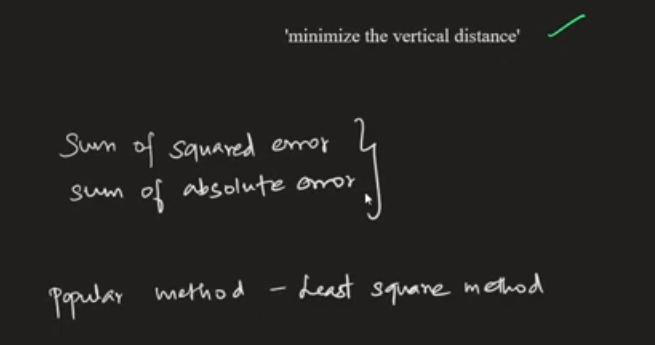 'minimize the vertical distance'
Sum of squared error
sum of absolute error
Popular method - Least square method